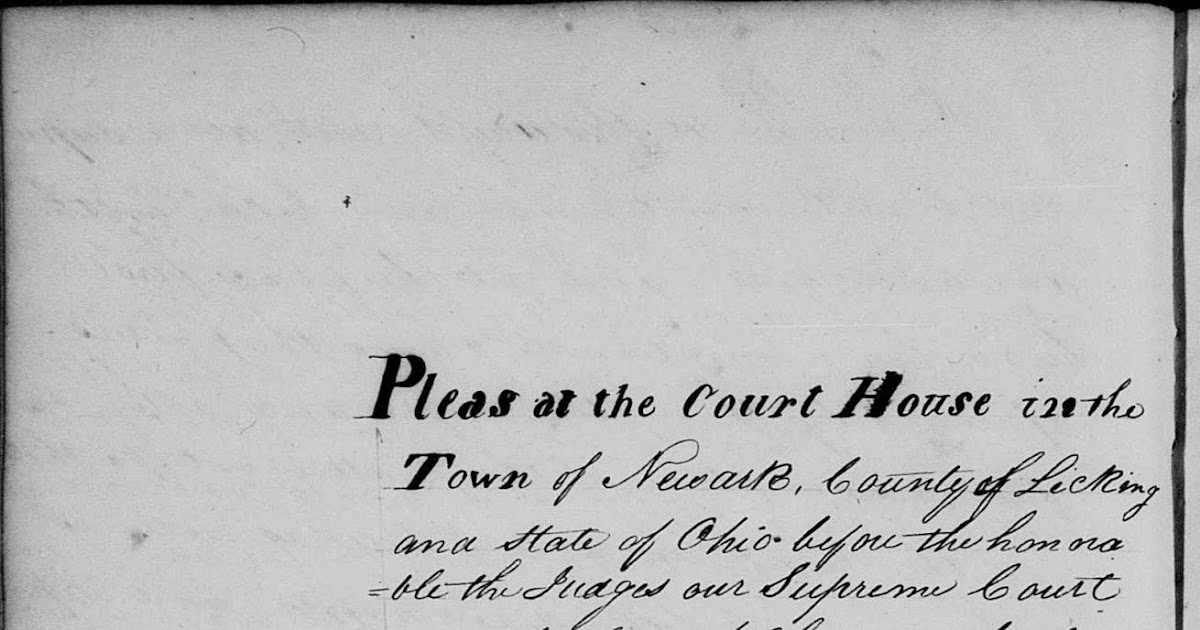 Pleas at the Court House in the
Town of Newark, County of Licking
and state of Ohio before the honora
=ble the Judges our Supreme Court